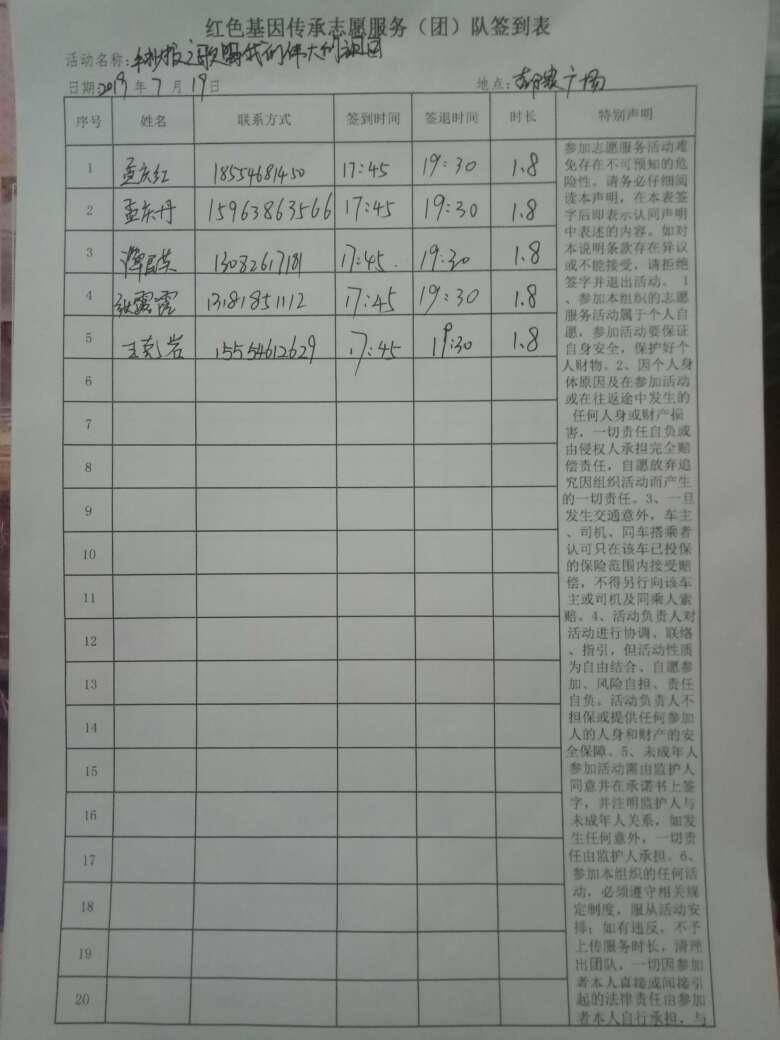 红色基因传承志愿服务（团）队签到表
活动名称：手抄报之歌唱我们伟大的祖国
日期：2019年7月19日 地点：广场
序号 姓名 联系方式 签到时间 签退时间 时长 特别声明
1 孟庆红 18554681450 17:45 19:30 1.8
2 孟庆丹 15963863566 17:45 19:30 1.8
3 谭君英 13082617181 17:45. 19:30 1.8
4 张露露 13181851112 17:45 19:30 1.8
5 王彩岩 15554612629 17:45 19:30 1.8
6
7
8
9
10
11
12
13
14
15
16
17
18
19
20
参加志愿服务活动难
免存在不可预知的危
险性。请务必仔细阅
读本声明，在本表签
字后即表示认同声明
中表述的内容。如对
本说明条款存在异议
或不能接受，请拒绝
签字并退出活动。 1
、参加本组织的志愿
服务活动属于个人自
愿，参加活动要保证
自身安全，保护好个
人财物。2、因个人身
体原因及在参加活动
或在往返途中发生的
任何人身或财产损
害，一切责任自负或
由侵权人承担完全赔
偿责任，自愿放弃追
究因组织活动而产生
的一切责任。3、一旦
发生交通意外，车主
、司机、同车搭乘者
认可只在该车已投保
的保险范围内接受赔
偿，不得另行向该车
主或司机及同乘人索
赔。4、活动负责人对
活动进行协调、联络
、指引，但活动性质
为自由结合、自愿参
加、风险自担、责任
自负。活动负责人不
担保或提供任何参加
人的人身和财产的安
全保障。5、未成年人
参加活动需由监护人
同意并在承诺书上签
字，并注明监护人与
未成年人关系，如发
生任何意外，一切责
任由监护人承担。6、
参加本组织的任何活
动，必须遵守相关规
定制度，服从活动安
排；如有违反，不予
上传服务时长，清理
出团队，一切因参加
者本人直接或间接引
起的法律责任由参加
者本人自行承担，与